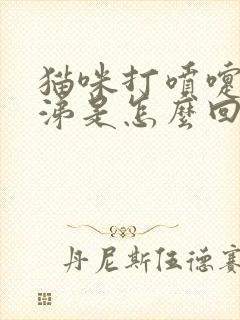 猫咪打喷嚏
涕是怎麼回
丹尼斯伍德赛